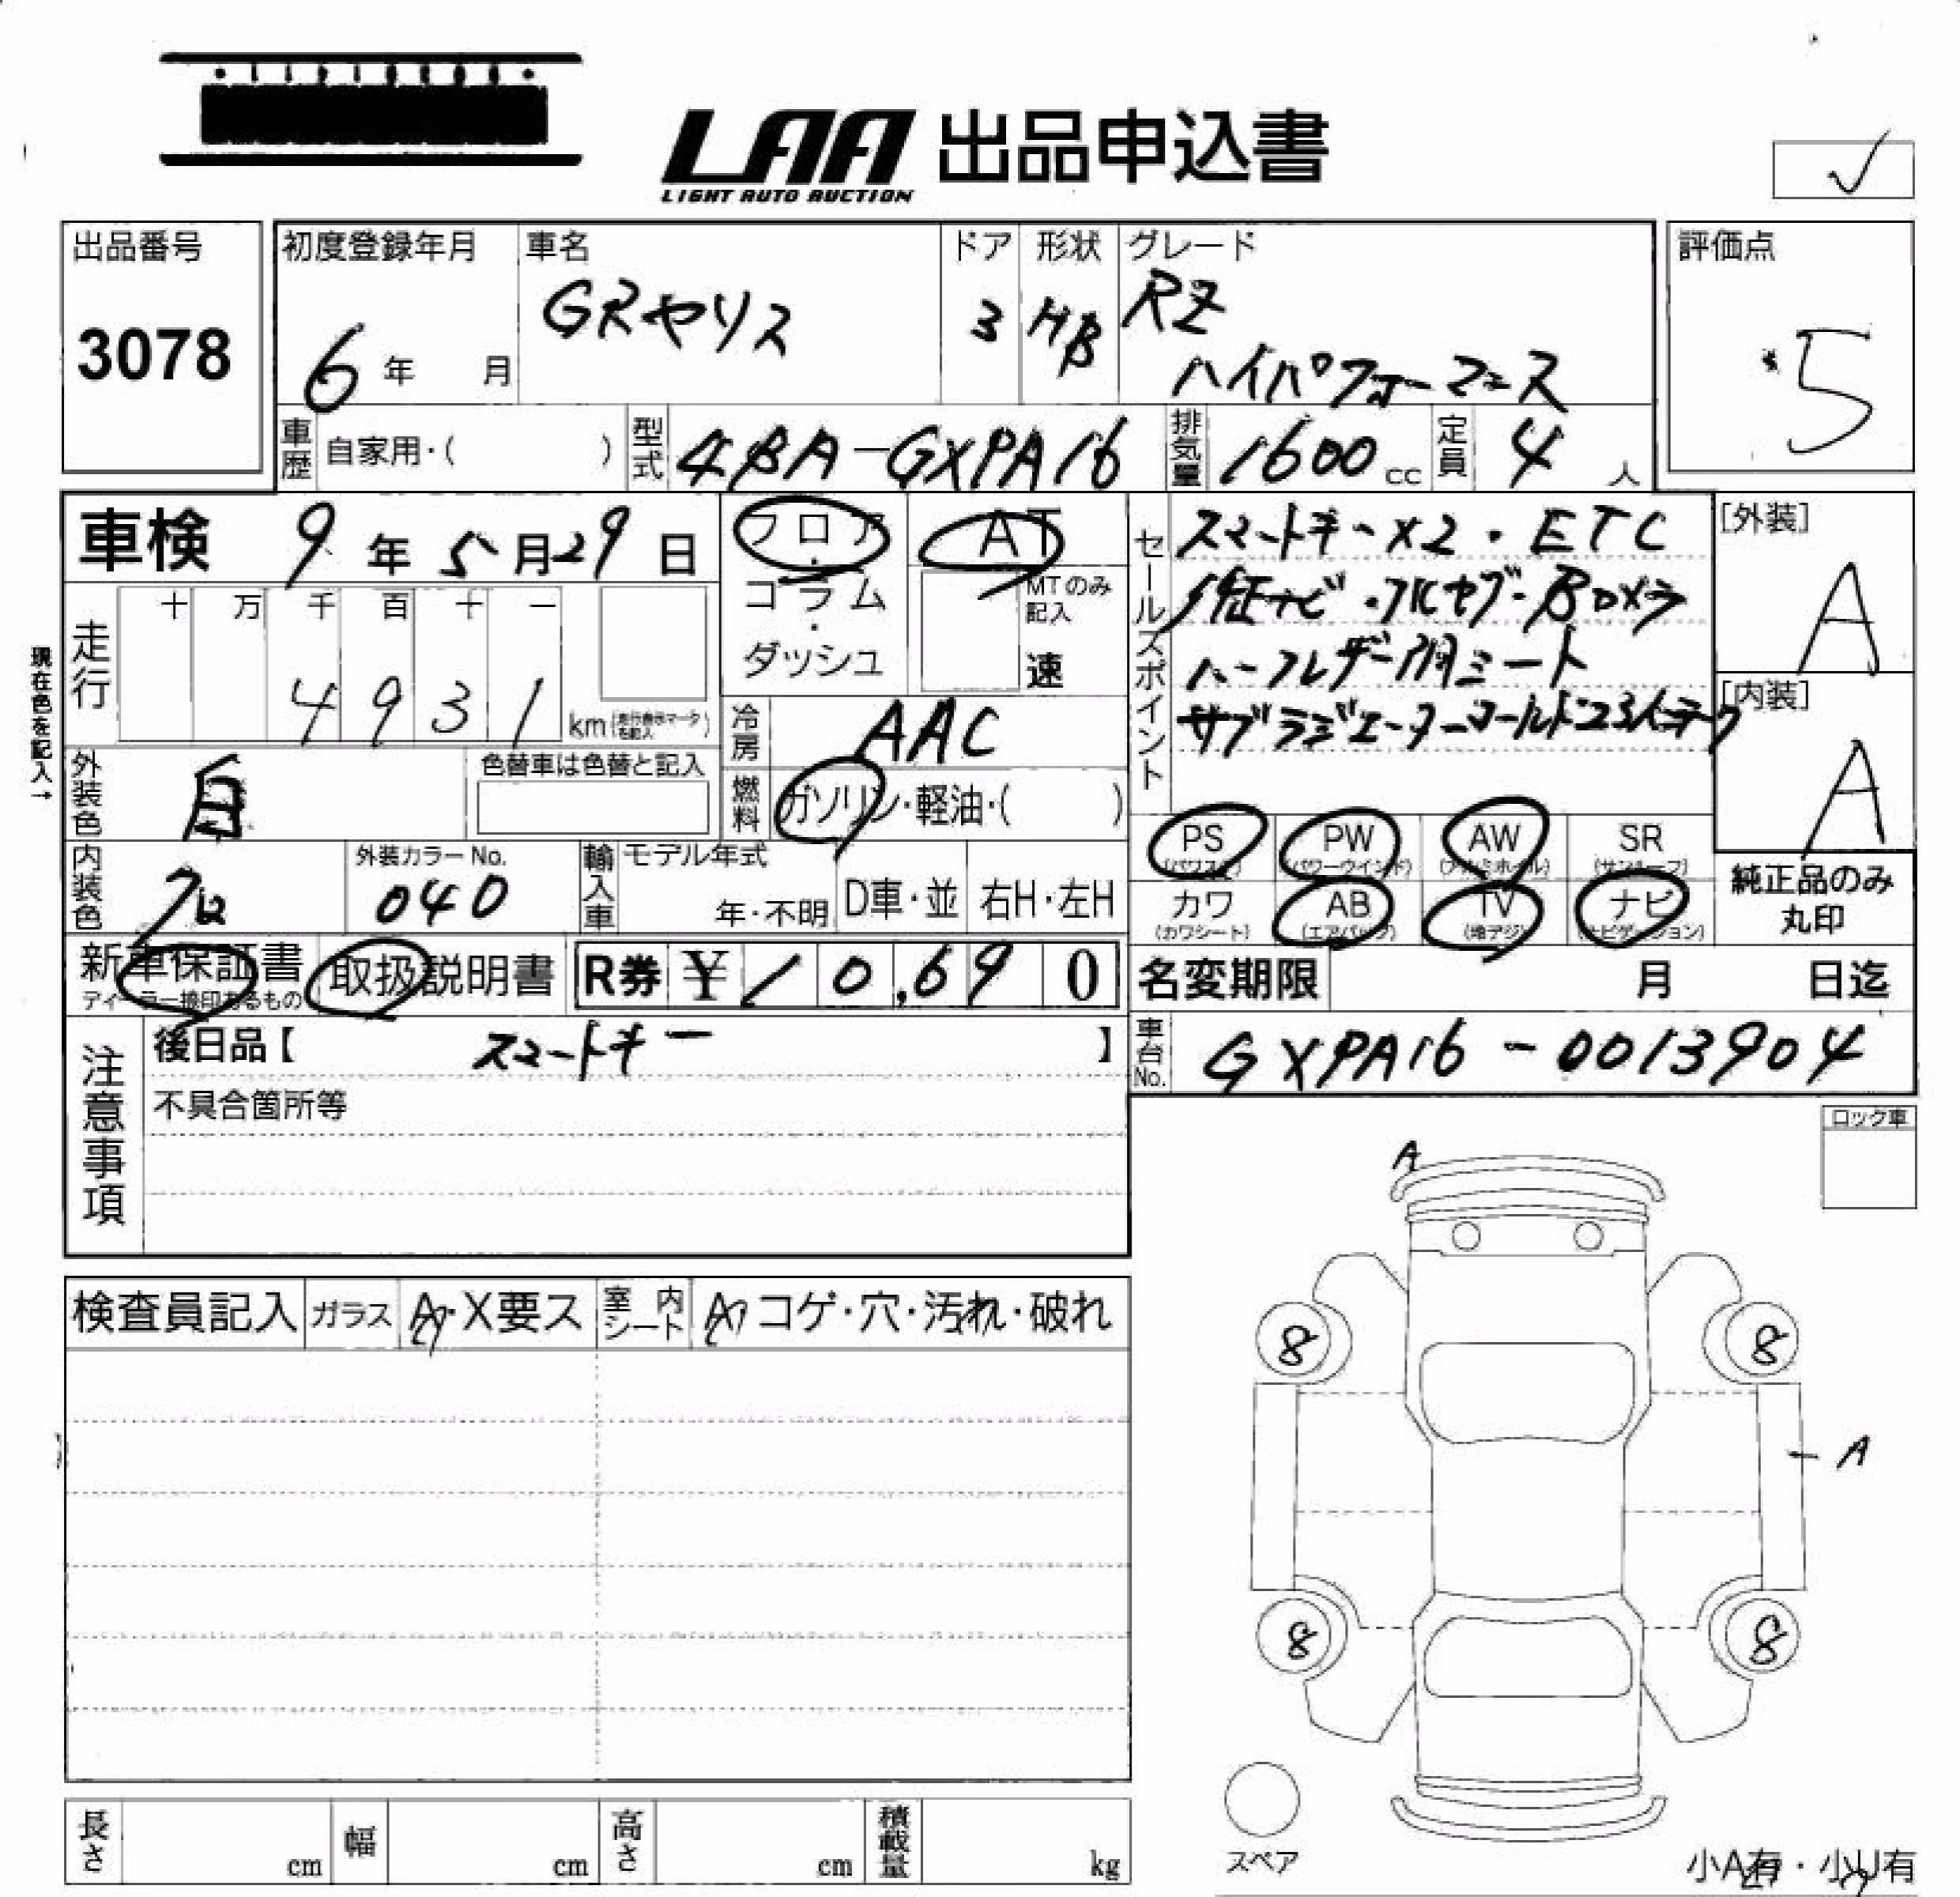 LAA 出品申込書
LIGHT AUTO AUCTION
出品番号
3078
初度登録年月
6年 月
車名
GRヤリス
ドア
3
形状
HB
グレード
RZ
ハイパフォーマンス
評価点
5
車歴 自家用・( )
型式 4BA-GXPA16
排気量 1600 cc
定員 4 人
車検 9年5月29日
フロア・コラム・ダッシュ
AT
MTのみ記入
速
セールスポイント
スマートキーX2・ETC
純正ナビ・フルセグ・Bカメラ
ハーフレザー調シート
[外装]
A
[内装]
A
現在色を記入→
走行
十 万 千 百 十 一
4 9 3 1 km
冷房 AAC
燃料 ガソリン・軽油・( )
外装色 白
色替車は色替と記入
内装色
外装カラーNo.
040
輸入車
モデル年式
年・不明
D車・並
右H・左H
PS
(パワステ)
PW
(パワーウインド)
AW
(アルミホイル)
SR
(サンルーフ)
カワ
(カワシート)
AB
(エアバッグ)
TV
(地デジ)
ナビ
(ナビゲーション)
純正品のみ
丸印
新車保証書
取扱説明書
R券 ¥10,690
名変期限 月 日迄
車台No. GXPA16-0013904
注意事項
後日品【 スマートキー 】
不具合箇所等
ロック車
検査員記入
ガラス A・X要ス
室内シート コゲ・穴・汚れ・破れ
A
8 8
A
8 8
スペア
小A有・小U有
長さ cm
幅 cm
高さ cm
積載量 kg